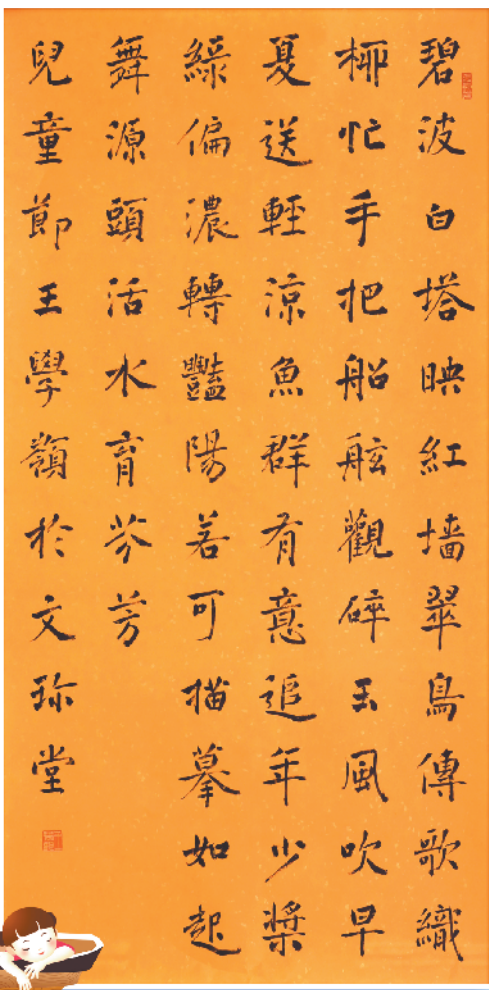 碧波白塔映紅墙翠鳥傳歌織
柳忙手把船舷觀碎玉風吹早
夏送輕涼魚群有意追年少槳
綠偏濃轉豔陽若可描摹如起
舞源頭活水育芬芳
兒童節王學嶺於文珍堂